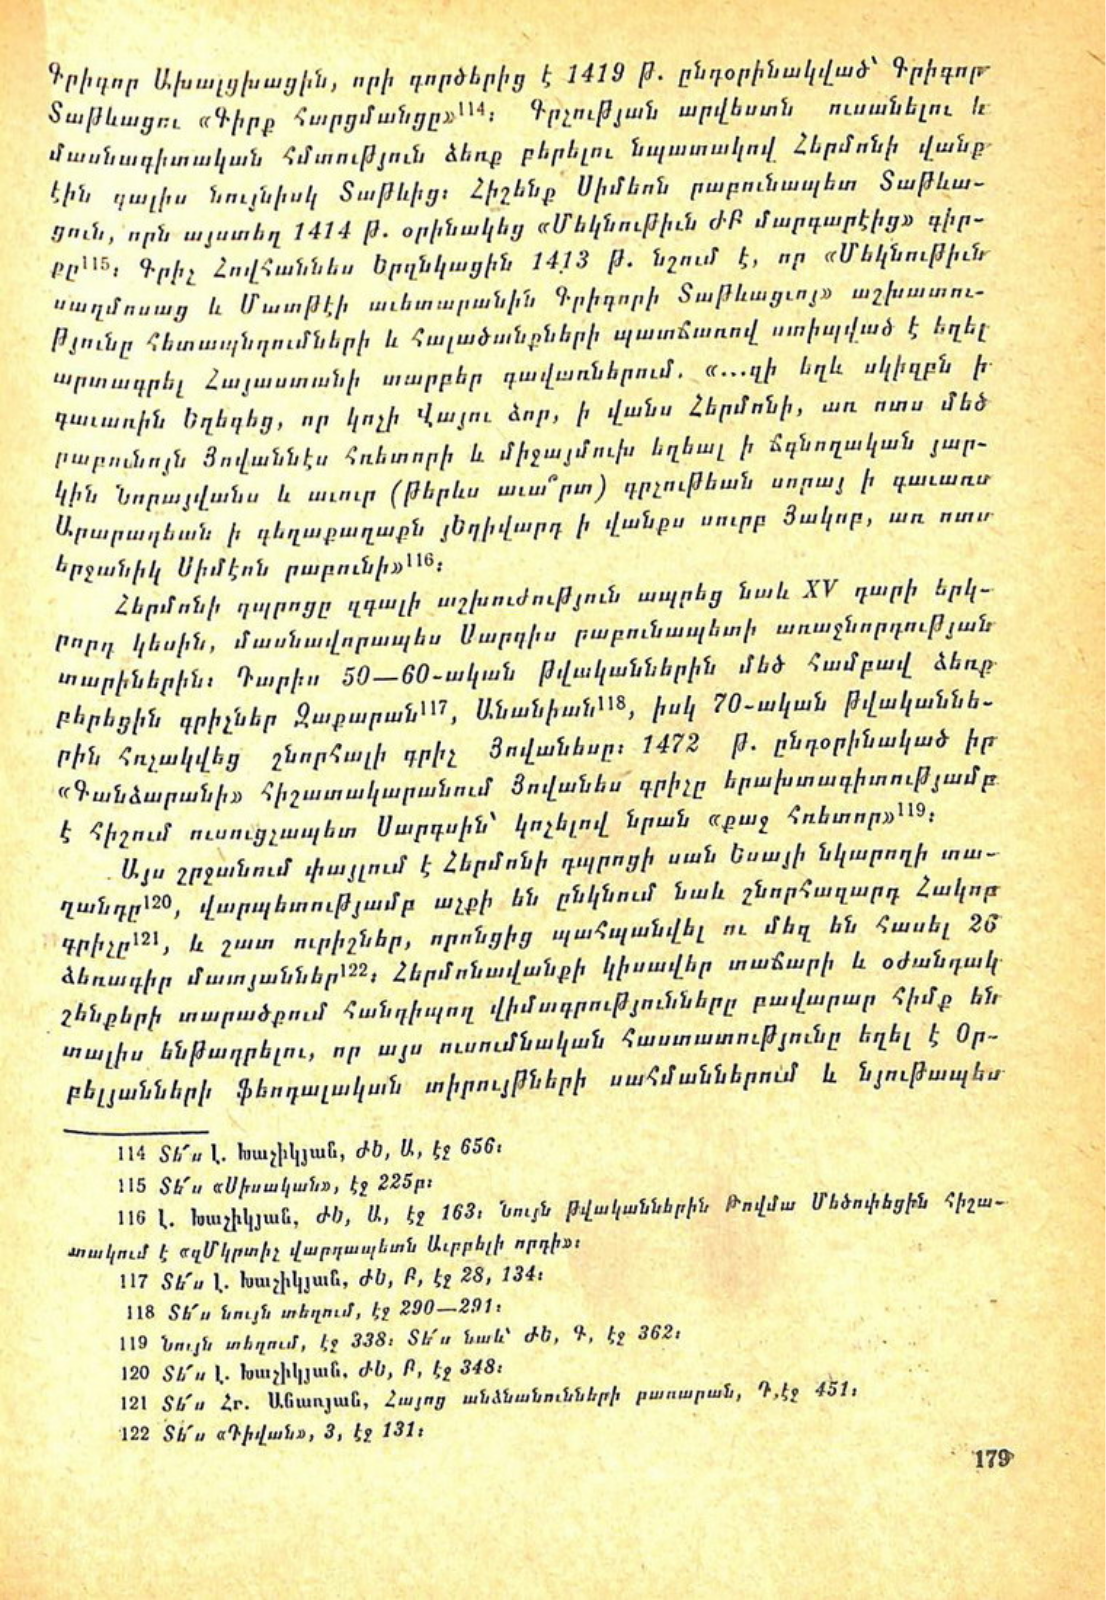 Գրիգոր Ախալցխացին, որի գործերից է 1419 թ. ընդօրինակված՝ Գրիգոր
Տաթևացու «Գիրք հարցմանցը»¹¹⁴։ Գրչության արվեստն ուսանելու և
մասնագիտական հմտություն ձեռք բերելու նպատակով Հերմոնի վանք
էին գալիս նույնիսկ Տաթևից։ Հիշենք Սիմեոն րաբունապետ Տաթևա-
ցուն, որն այստեղ 1414 թ. օրինակեց «Մեկնութիւն ԺԲ մարգարէից» գիր-
քը¹¹⁵։ Գրիչ Հովհաննես Երզնկացին 1413 թ. նշում է, որ «Մեկնութիւն
սաղմոսաց և Մատթէի աւետարանին Գրիգորի Տաթևացւոյ» աշխատու-
թյունը հետապնդումների և հալածանքների պատճառով ստիպված է եղել
արտագրել Հայաստանի տարբեր գավառներում. «...զի եղև սկիզբն ի
գաւառին Եղեգեց, որ կոչի Վայու ձոր, ի վանս Հերմոնի, առ ոտս մեծ
րաբունոյն Յովաննէս հռետորի և միջայմուխ եղեալ ի ճգնողական յար-
կին Նորայվանս և աւուր (թերևս աւա՞րտ) գրչութեան սորայ ի գաւառս
Արարադեան ի գեղաքաղաքն յԵղիվարդ ի վանքս սուրբ Յակոբ, առ ոտս
երջանիկ Սիմէոն րաբունի»¹¹⁶։
Հերմոնի դպրոցը զգալի աշխուժություն ապրեց նաև XV դարի երկ-
րորդ կեսին, մասնավորապես Սարգիս րաբունապետի առաջնորդության
տարիներին։ Դարիս 50—60-ական թվականներին մեծ համբավ ձեռք
բերեցին գրիչներ Զաքարան¹¹⁷, Անանիան¹¹⁸, իսկ 70-ական թվականնե-
րին հռչակվեց շնորհալի գրիչ Յովանեսը։ 1472 թ. ընդօրինակած իր
«Գանձարանի» հիշատակարանում Յովանես գրիչը երախտագիտությամբ
է հիշում ուսուցչապետ Սարգսին՝ կոչելով նրան «քաջ հռետոր»¹¹⁹։
Այս շրջանում փայլում է Հերմոնի դպրոցի սան Եսայի նկարողի տա-
ղանդը¹²⁰, վարպետությամբ աչքի են ընկնում նաև շնորհազարդ Հակոբ
գրիչը¹²¹, և շատ ուրիշներ, որոնցից պահպանվել ու մեզ են հասել 26
ձեռագիր մատյաններ¹²²։ Հերմոնավանքի կիսավեր տաճարի և օժանդակ
շենքերի տարածքում հանդիպող վիմագրությունները բավարար հիմք են
տալիս ենթադրելու, որ այս ուսումնական հաստատությունը եղել է Օր-
բելյանների ֆեոդալական տիրույթների սահմաններում և նյութապես
114 Տե՛ս Լ. Խաչիկյան, ԺԵ, Ա, էջ 656։
115 Տե՛ս «Սիսական», էջ 225բ։
116 Լ. Խաչիկյան, ԺԵ, Ա, էջ 163։ Նույն թվականներին Թովմա Մեծոփեցին հիշա-
տակում է «զՄկրտիչ վարդապետն Աւբբելի որդի»։
117 Տե՛ս Լ. Խաչիկյան, ԺԵ, Բ, էջ 28, 134։
118 Տե՛ս նույն տեղում, էջ 290—291։
119 Նույն տեղում, էջ 338։ Տե՛ս նաև՝ ԺԵ, Գ, էջ 362։
120 Տե՛ս Լ. Խաչիկյան, ԺԵ, Բ, էջ 348։
121 Տե՛ս Հր. Անառյան, Հայոց անձնանունների բառարան, Դ,էջ 451։
122 Տե՛ս «Դիվան», 3, էջ 131։
179